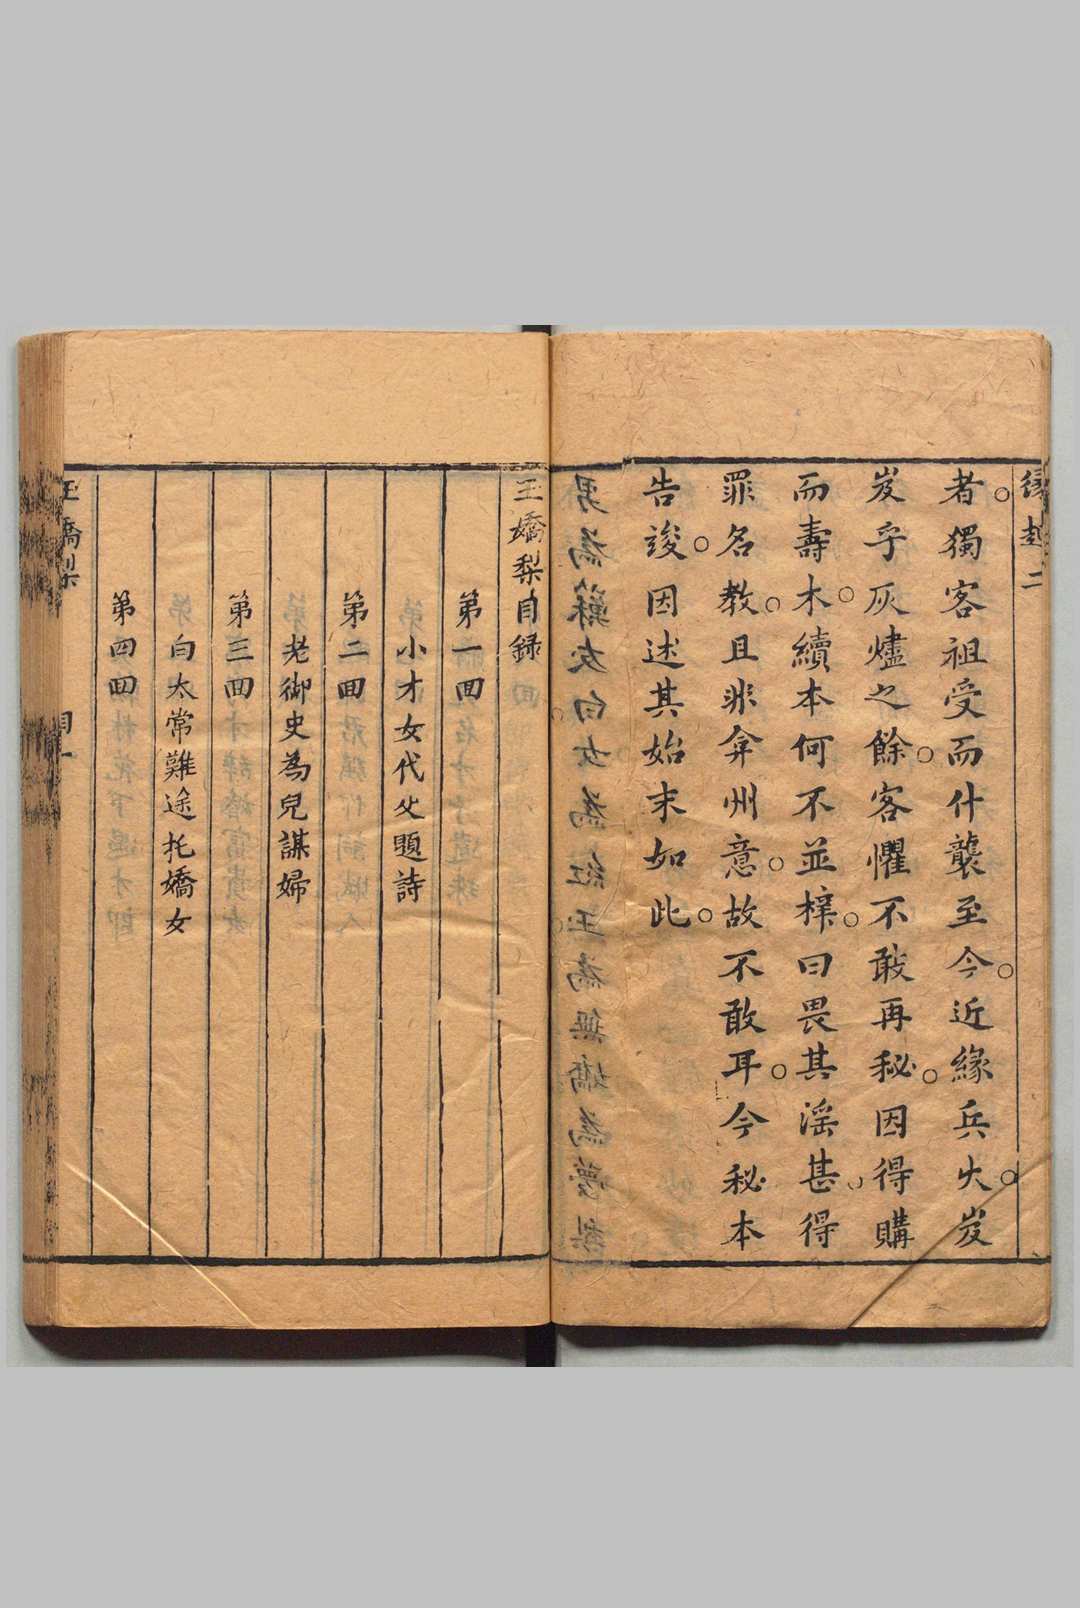 緣起 二
者獨客祖受而什襲至今近緣兵火岌
岌乎灰燼之餘客懼不敢再秘因得購
而壽木續本何不並梓曰畏其淫甚得
罪名教且非弇州意故不敢耳今秘本
告竣因述其始末如此
玉嬌梨目錄
第一回
小才女代父題詩
第二回
老御史為兒謀婦
第三回
白太常難途托嬌女
第四回
玉嬌梨 目一